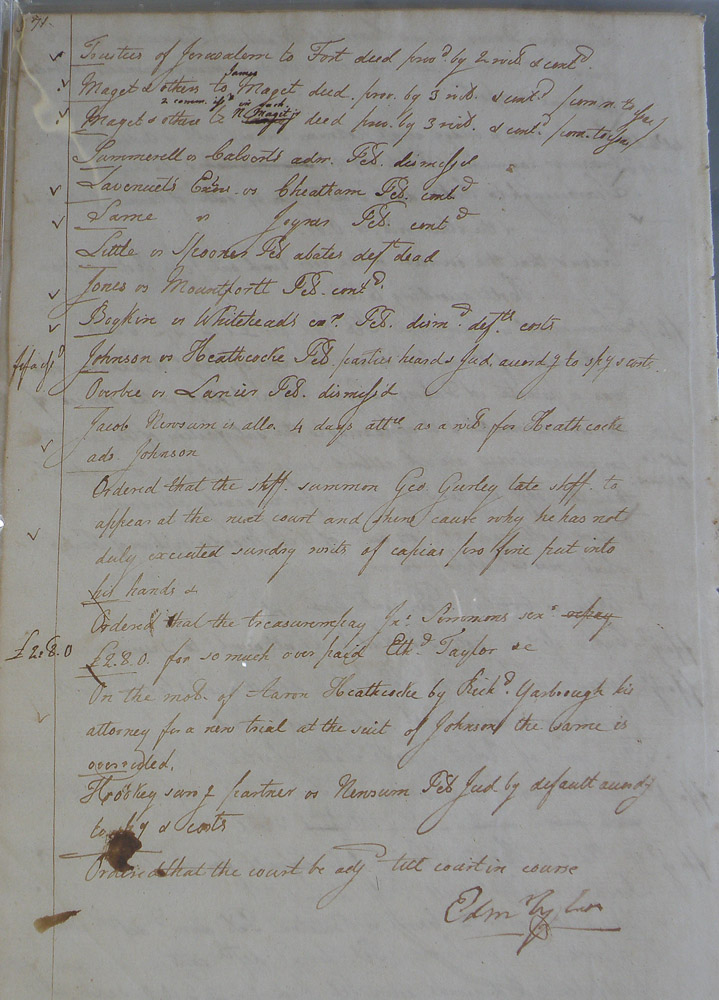 71
Trustees of Jerusalem to Fort deed prov.d by 2 wit.s & cont.d
James
Maget & others to Maget deed prov. by 3 wit. & cont.d
Maget & others to Maget deed prov. by 3 wit. & cont.
Summerell vs Calvert's adm. Pet. dismissed
Lavenuet's Exors. vs Cheatham Pet. cont.d
Same vs Joyner Pet. cont.d
Little vs Spooner Pet abates def.t dead
Jones vs Mountfortt Pet. cont.d
Boykin vs Whitehead's ex.r. Pet. dism.d def.ts costs
Johnson vs Heathcocke Pet. parties heard & Jud. accord.g to spy & costs
Overbie vs Lanier Pet. dismiss'd
Jacob Newsum is allo. 4 days att.ce as a wit. for Heathcocke
ads. Johnson
Ordered that the shff. summon Geo. Gurley late shff. to
appear at the next court and shew cause why he has not
duly executed sundry writs of capias pro fine put into
his hands &
Ordered that the treasurer pay Jn.o Simmons sen.r
£2.8.0 £2.8.0. for so much over paid Eth.d Taylor &c
On the mot. of Aaron Heathcocke by Rich.d Yarbrough his
attorney for a new trial at the suit of Johnson the same is
overruled.
surv.g partner vs Newsum Pet Jud by default accord.g
to spy & costs
Ordered that the court be adj.d till court in course
Edm.d Tyler